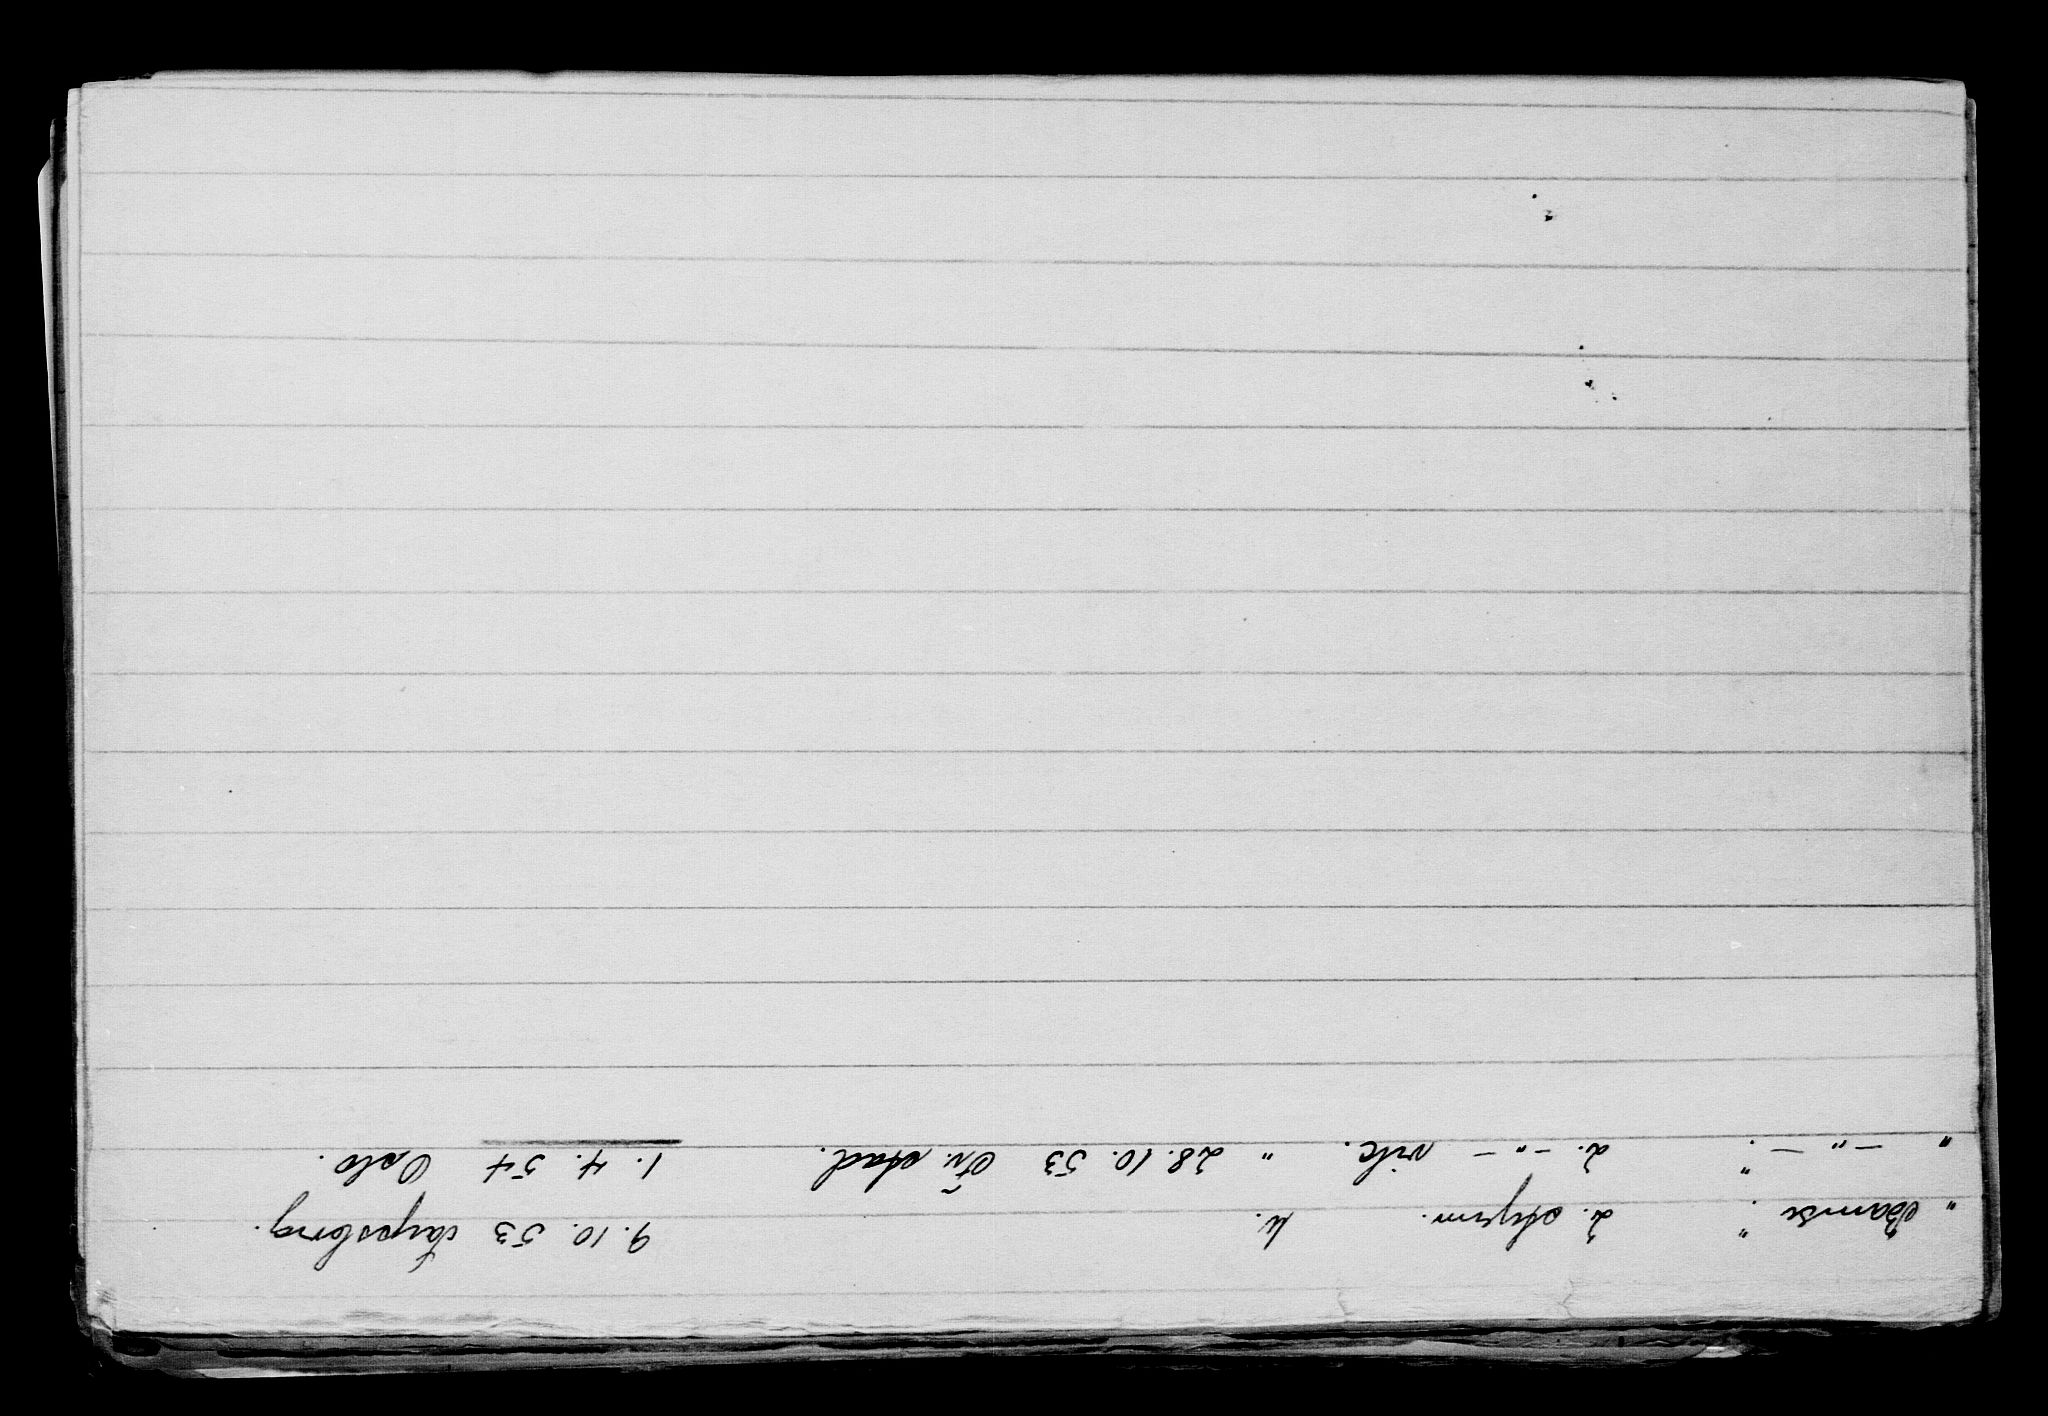 " Bamse " 2. styrm. u. 9.10.53 Sarpsborg.
" —"— " 2. —"— vik. " 28.10.53 Fr. stad. 1.4.54 Oslo.